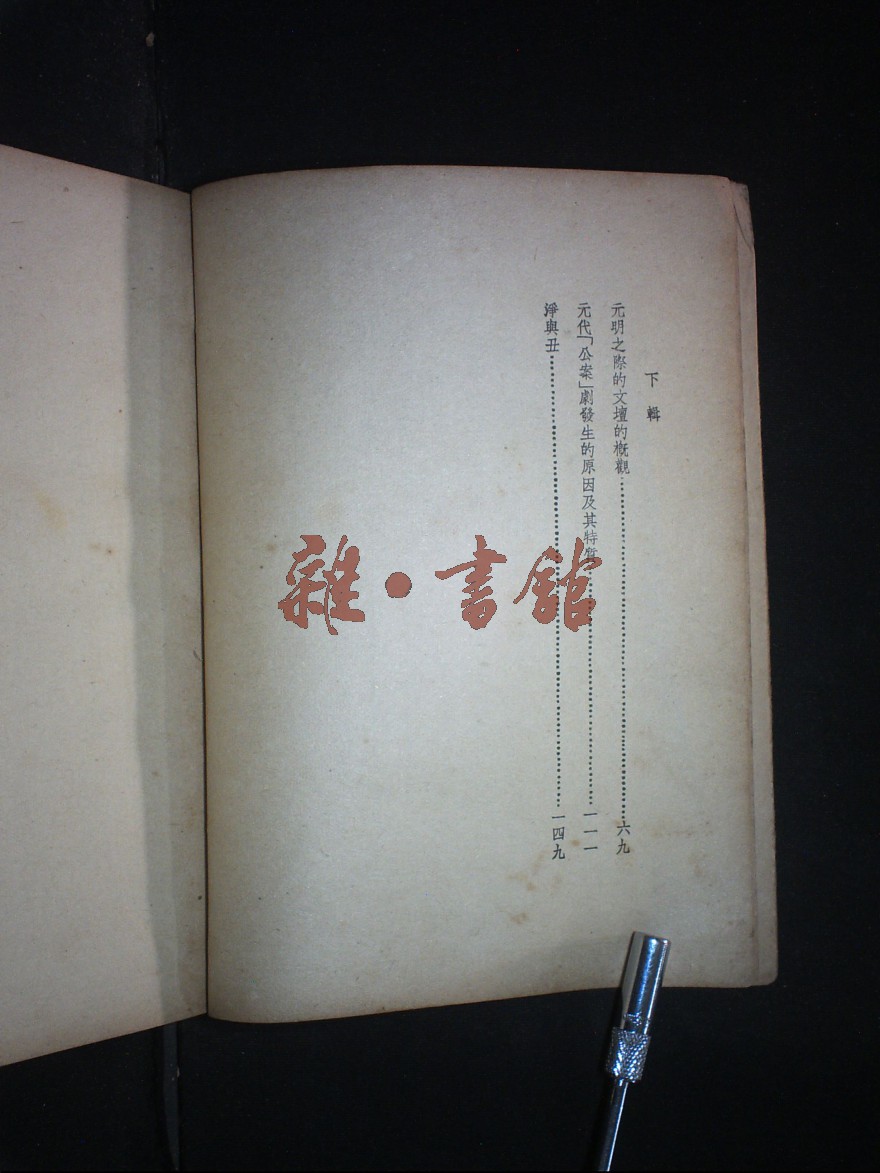 下輯
元明之際的文壇的概觀……六九
元代「公案」劇發生的原因及其特質……一一一
淨與丑……一四九
雜•書館